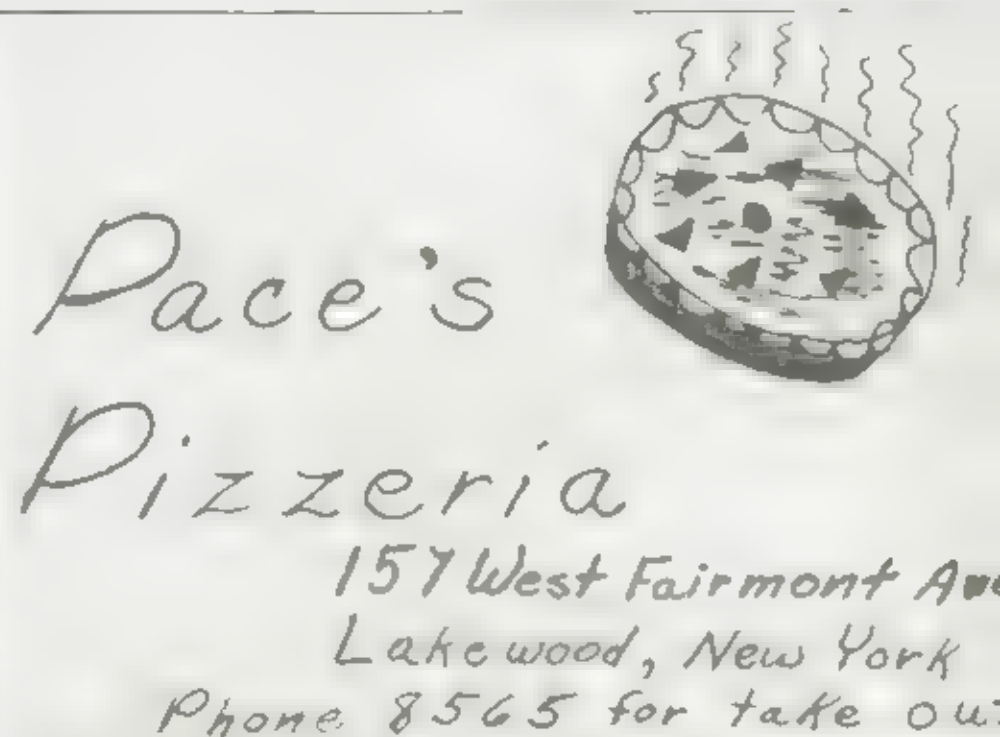 Pace's
Pizzeria
157 West Fairmont Ave
Lakewood, New York
Phone 8565 for take out